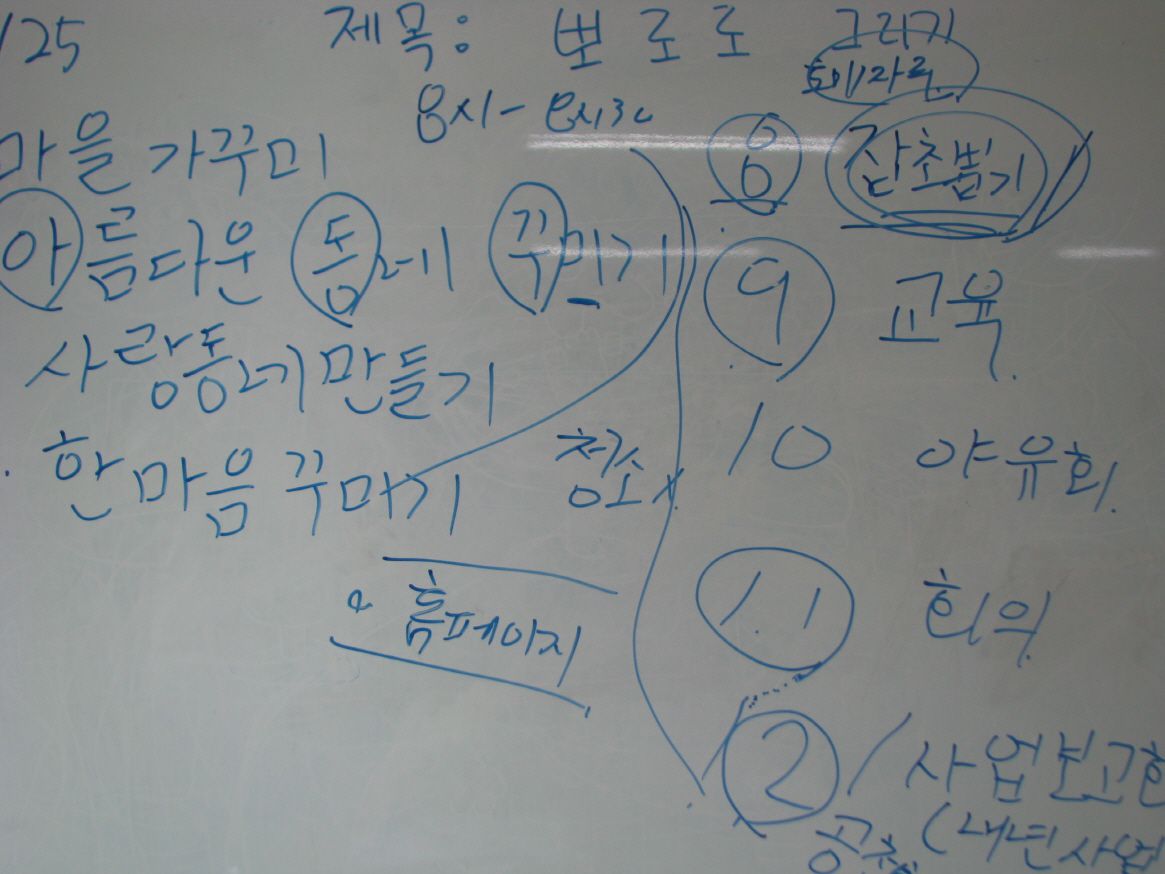 /25
제목: 뽀로로 그리기
8시-8시30
마을 가꾸미
아름다운 동네 꾸미기
사랑동네기만들기
한마음 꾸마기
청소
홈페이지
8 잡초뽑기
9 교육
10 야유회
11 회의
12 사업보고회
(내년사업